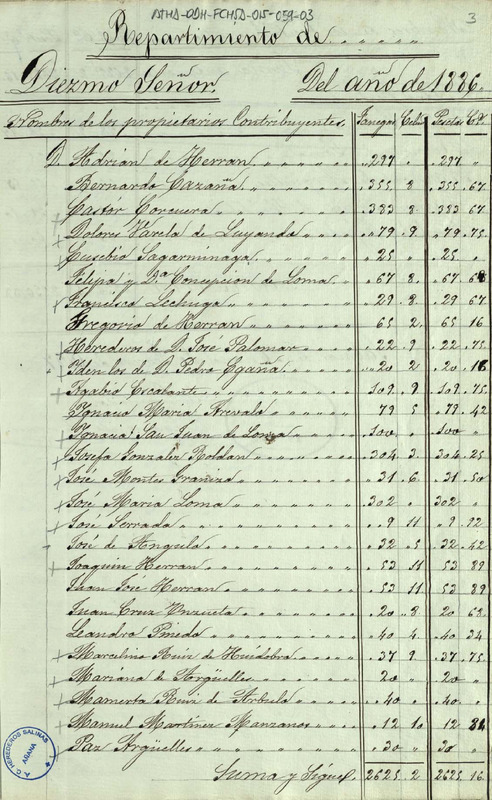 ATHA-DAH-FCHSD-015-059-03
3
Repartimiento de
Diezmo Señor. Del año de 1886.
Nombres de los propietarios Contribuyentes. Fanegas Cels Pesetas Cts
D. Adrian de Herran 297 " 297 "
Bernardo Cazaña 355 8 355 67
Castór Corcuera 383 8 383 67
Dolores Varela de Luyando 79 9 79 75
Eusebio Sagarmínaga 25 " 25 "
Felipa y Dª Concepcion de Loma 67 8 67 68
Francisco Lechuga 29 8 29 67
Gregorio de Herran 65 2 65 16
Herederos de D. José Palomar 22 9 22 75
Iden los de D. Pedro Egaña 20 2 20 18
Agabio Escalante 109 9 109 75
Ignacio Maria Arevalo 79 5 79 42
Ignacia San Juan de Lonja 100 " 100 "
Josefa Gonzalez Roldan 304 3 304 25
José Montes Granizo 31 6 31 50
José Maria Loma 302 " 302 "
José Serrada 9 11 9 92
José de Angulo 32 5 32 42
Joaquin Herran 53 11 53 89
Juan José Herran 53 11 53 89
Juan Cruz Unzueta 20 8 20 68
Leandro Pinedo 40 4 40 34
Marcelino Ruiz de Huidobro 37 9 37 75
Mariana de Argüelles 20 " 20 "
Mamerta Ruiz de Arbulo 40 " 40 "
Manuel Martinez Manzanos 12 10 12 84
Paz Argüelles 30 " 30 "
Suma y Sigue 2625 2 2625 16
A.C. HEREDEROS SALINAS
AÑANA